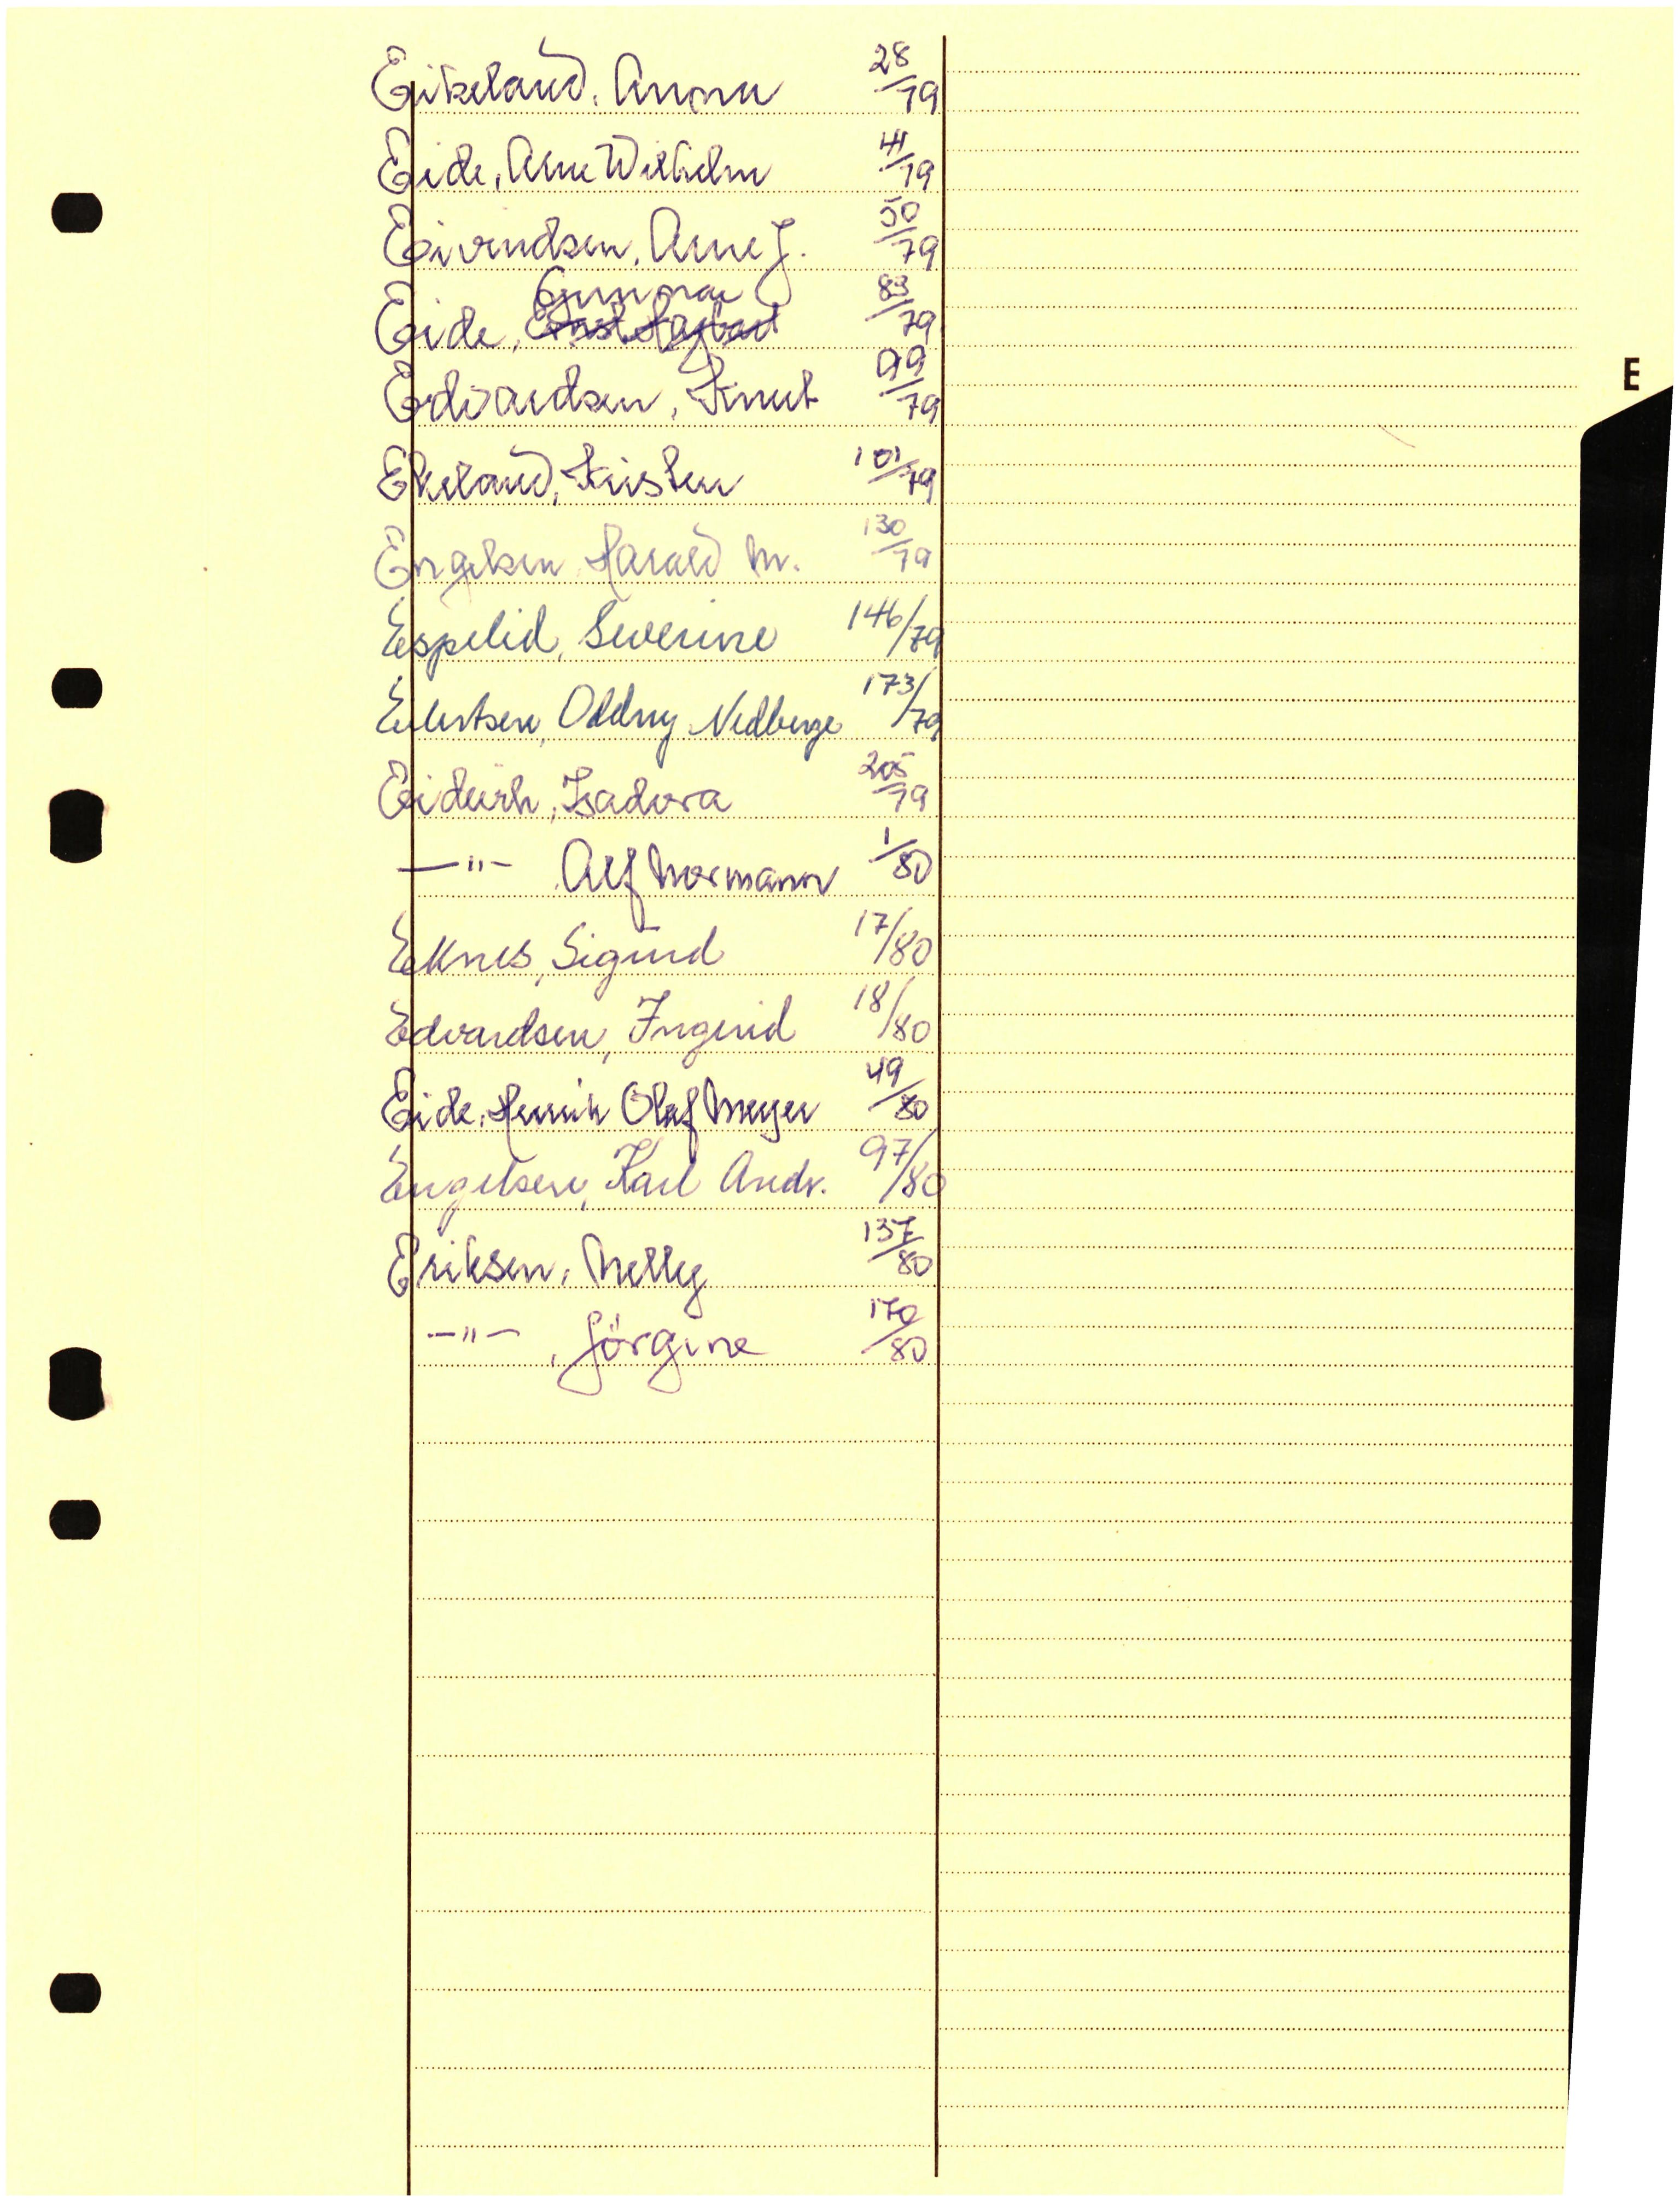 Eikeland, Anna 28/79
Eide, Arne Wilhelm 41/79
Eivindsen, Arne J. 50/79
Gunnar
Eide, 83/79
Edvardsen, Knut 99/79
E
Ekeland, Kirsten 101/79
Engelsen, Harald M. 130/79
Espelid, Severine 146/79
Evertsen, Oddny Nedberge 173/79
Eidevik, Isadora 205/79
—"— , Alf Normann 1/80
Eknes, Sigurd 17/80
Edvardsen, Ingerid 18/80
Eide, Henrik Olaf Meyer 49/80
Engelsen, Karl Andr. 97/80
Eriksen, Nelly 137/80
—"— , Jörgine 170/80